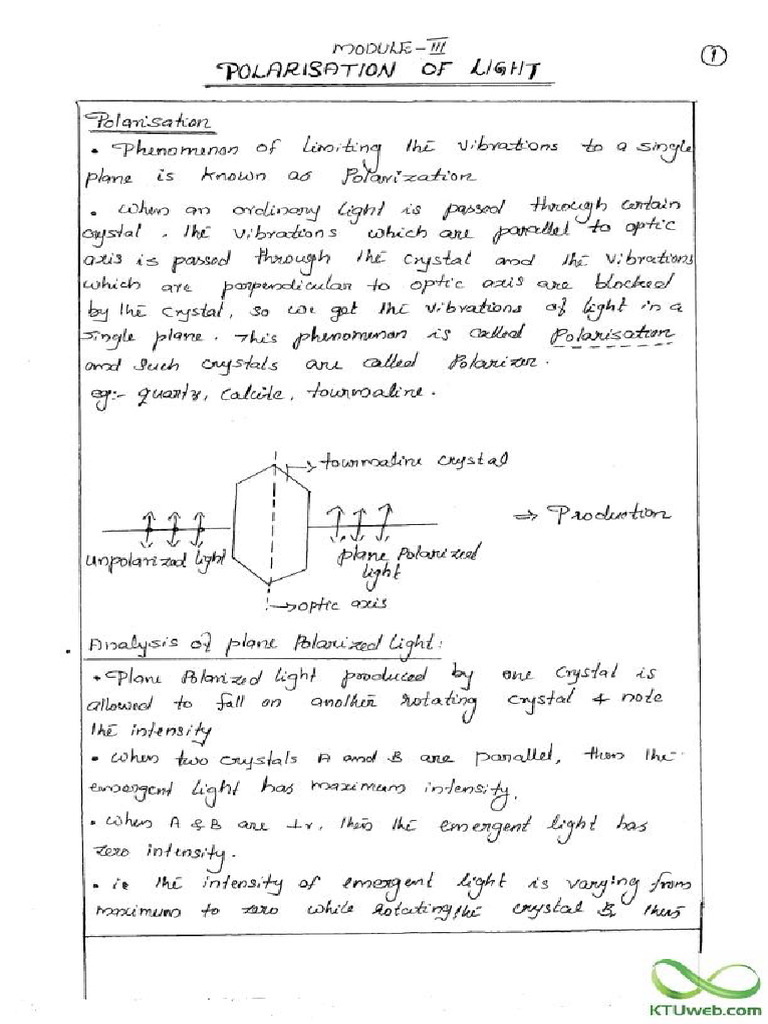 MODULE-III
POLARISATION OF LIGHT
1
Polarisation
• Phenomenon of limiting the vibrations to a single
plane is known as Polarization
• when an ordinary light is passed through certain
crystal. The vibrations which are parallel to optic
axis is passed through the crystal and the vibrations
which are perpendicular to optic axis are blocked
by the crystal, so we get the vibrations of light in a
single plane. This phenomenon is called Polarisation
and such crystals are called Polarizer.
eg:- quartz, calcite, tourmaline.
tourmaline crystal
⇒ Production
unpolarized light
plane Polarized
light
optic axis
Analysis of plane Polarized light:
• Plane Polarized light produced by one crystal is
allowed to fall on another rotating crystal & note
the intensity
• when two crystals A and B are parallel, then the
emergent light has maximum intensity.
• when A & B are ⊥r, then the emergent light has
zero intensity.
• ie the intensity of emergent light is varying from
maximum to zero while rotating the crystal B, then
KTUweb.com